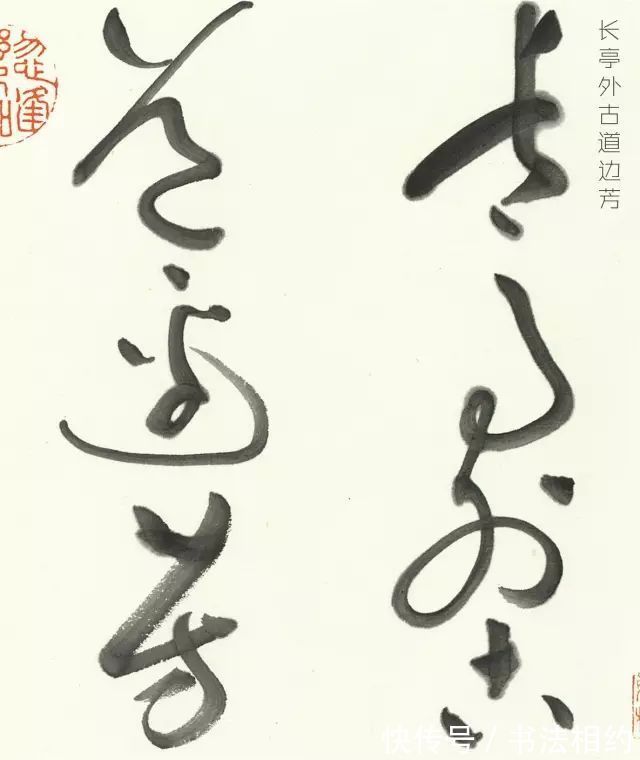 长亭外古道边芳
长亭外古
道边芳
快传号/书法相约